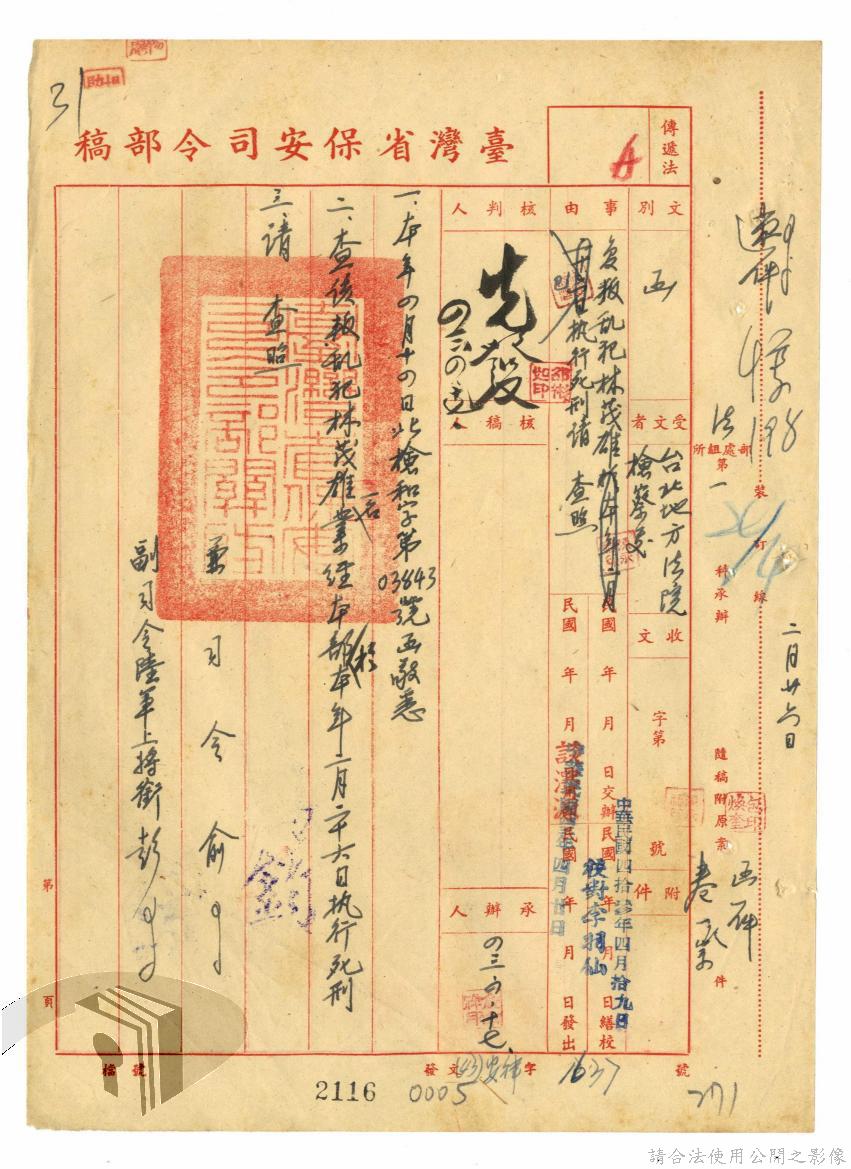 臺灣省保安司令部稿
傳遞法
文別
函
受文者
台北地方法院
檢察處
收文 字第 號
附件
事由
為叛乱犯林茂雄於本年二月
廿六日执行死刑请 查照
核判人
先發
核稿人
承辦人
民國 年 月 日交辦
民國 年 月 日繕校
民國 年 月 日發出
中華民國四拾三年四月拾九日
校對李羽仙
四月廿日
一、本年四月十四日北檢和字第03843號函敬悉
二、查该叛乱犯林茂雄一名業經本部於本年二月二十六日执行死刑
三、请 查照
兼司令俞
副司令陸軍上將銜彭
部處組所
法
第一科承辦
隨稿附原案
卷
件
裝訂線
二月廿六日
198
31
發文 (43)安律字 0005 1637 號
檔號
第 頁
2116
271
請合法使用公開之影像